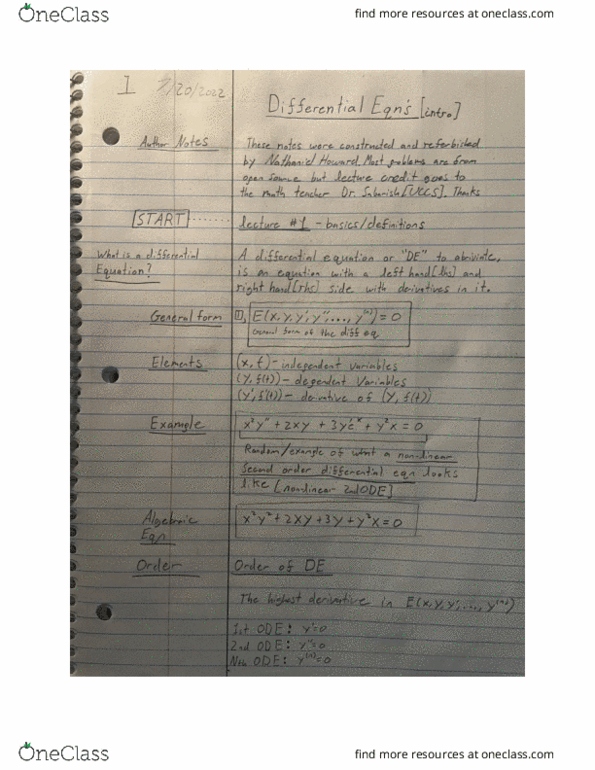 OneClass
find more resources at oneclass.com
1 7/20/2022
Differential Eqn's [intro]
Author Notes
These notes were constructed and referbished
by Nathaniel Howard. Most problems are from
open source but lecture credit goes to
the math teacher Dr. Sabanish [UCCS]. Thanks
START
Lecture #1 - basics/definitions
What is a differential
Equation?
A differential equation or "DE" to abriviate,
is an equation with a left hand [lhs] and
right hand [rhs] side with derivatives in it.
General form
E(x, y, y', y'', ..., y⁽ⁿ⁾) = 0
General form of the diff eq
Elements
(x, t) - independent variables
(y, f(t)) - dependent Variables
(y', f'(t)) - derivative of (y, f(t))
Example
x²y'' + 2xy + 3y'eˣ + y²x = 0
Random/example of what a non-linear
Second order differential eqn looks
like [nonlinear 2nd ODE]
Algebraic
Eqn
x²y² + 2xy + 3y + y²x = 0
Order
Order of DE
The highest derivative in E(x, y, y', ..., y⁽ⁿ⁾)
1st ODE: y'=0
2nd ODE: y''=0
Nth ODE: y⁽ⁿ⁾=0
OneClass
find more resources at oneclass.com